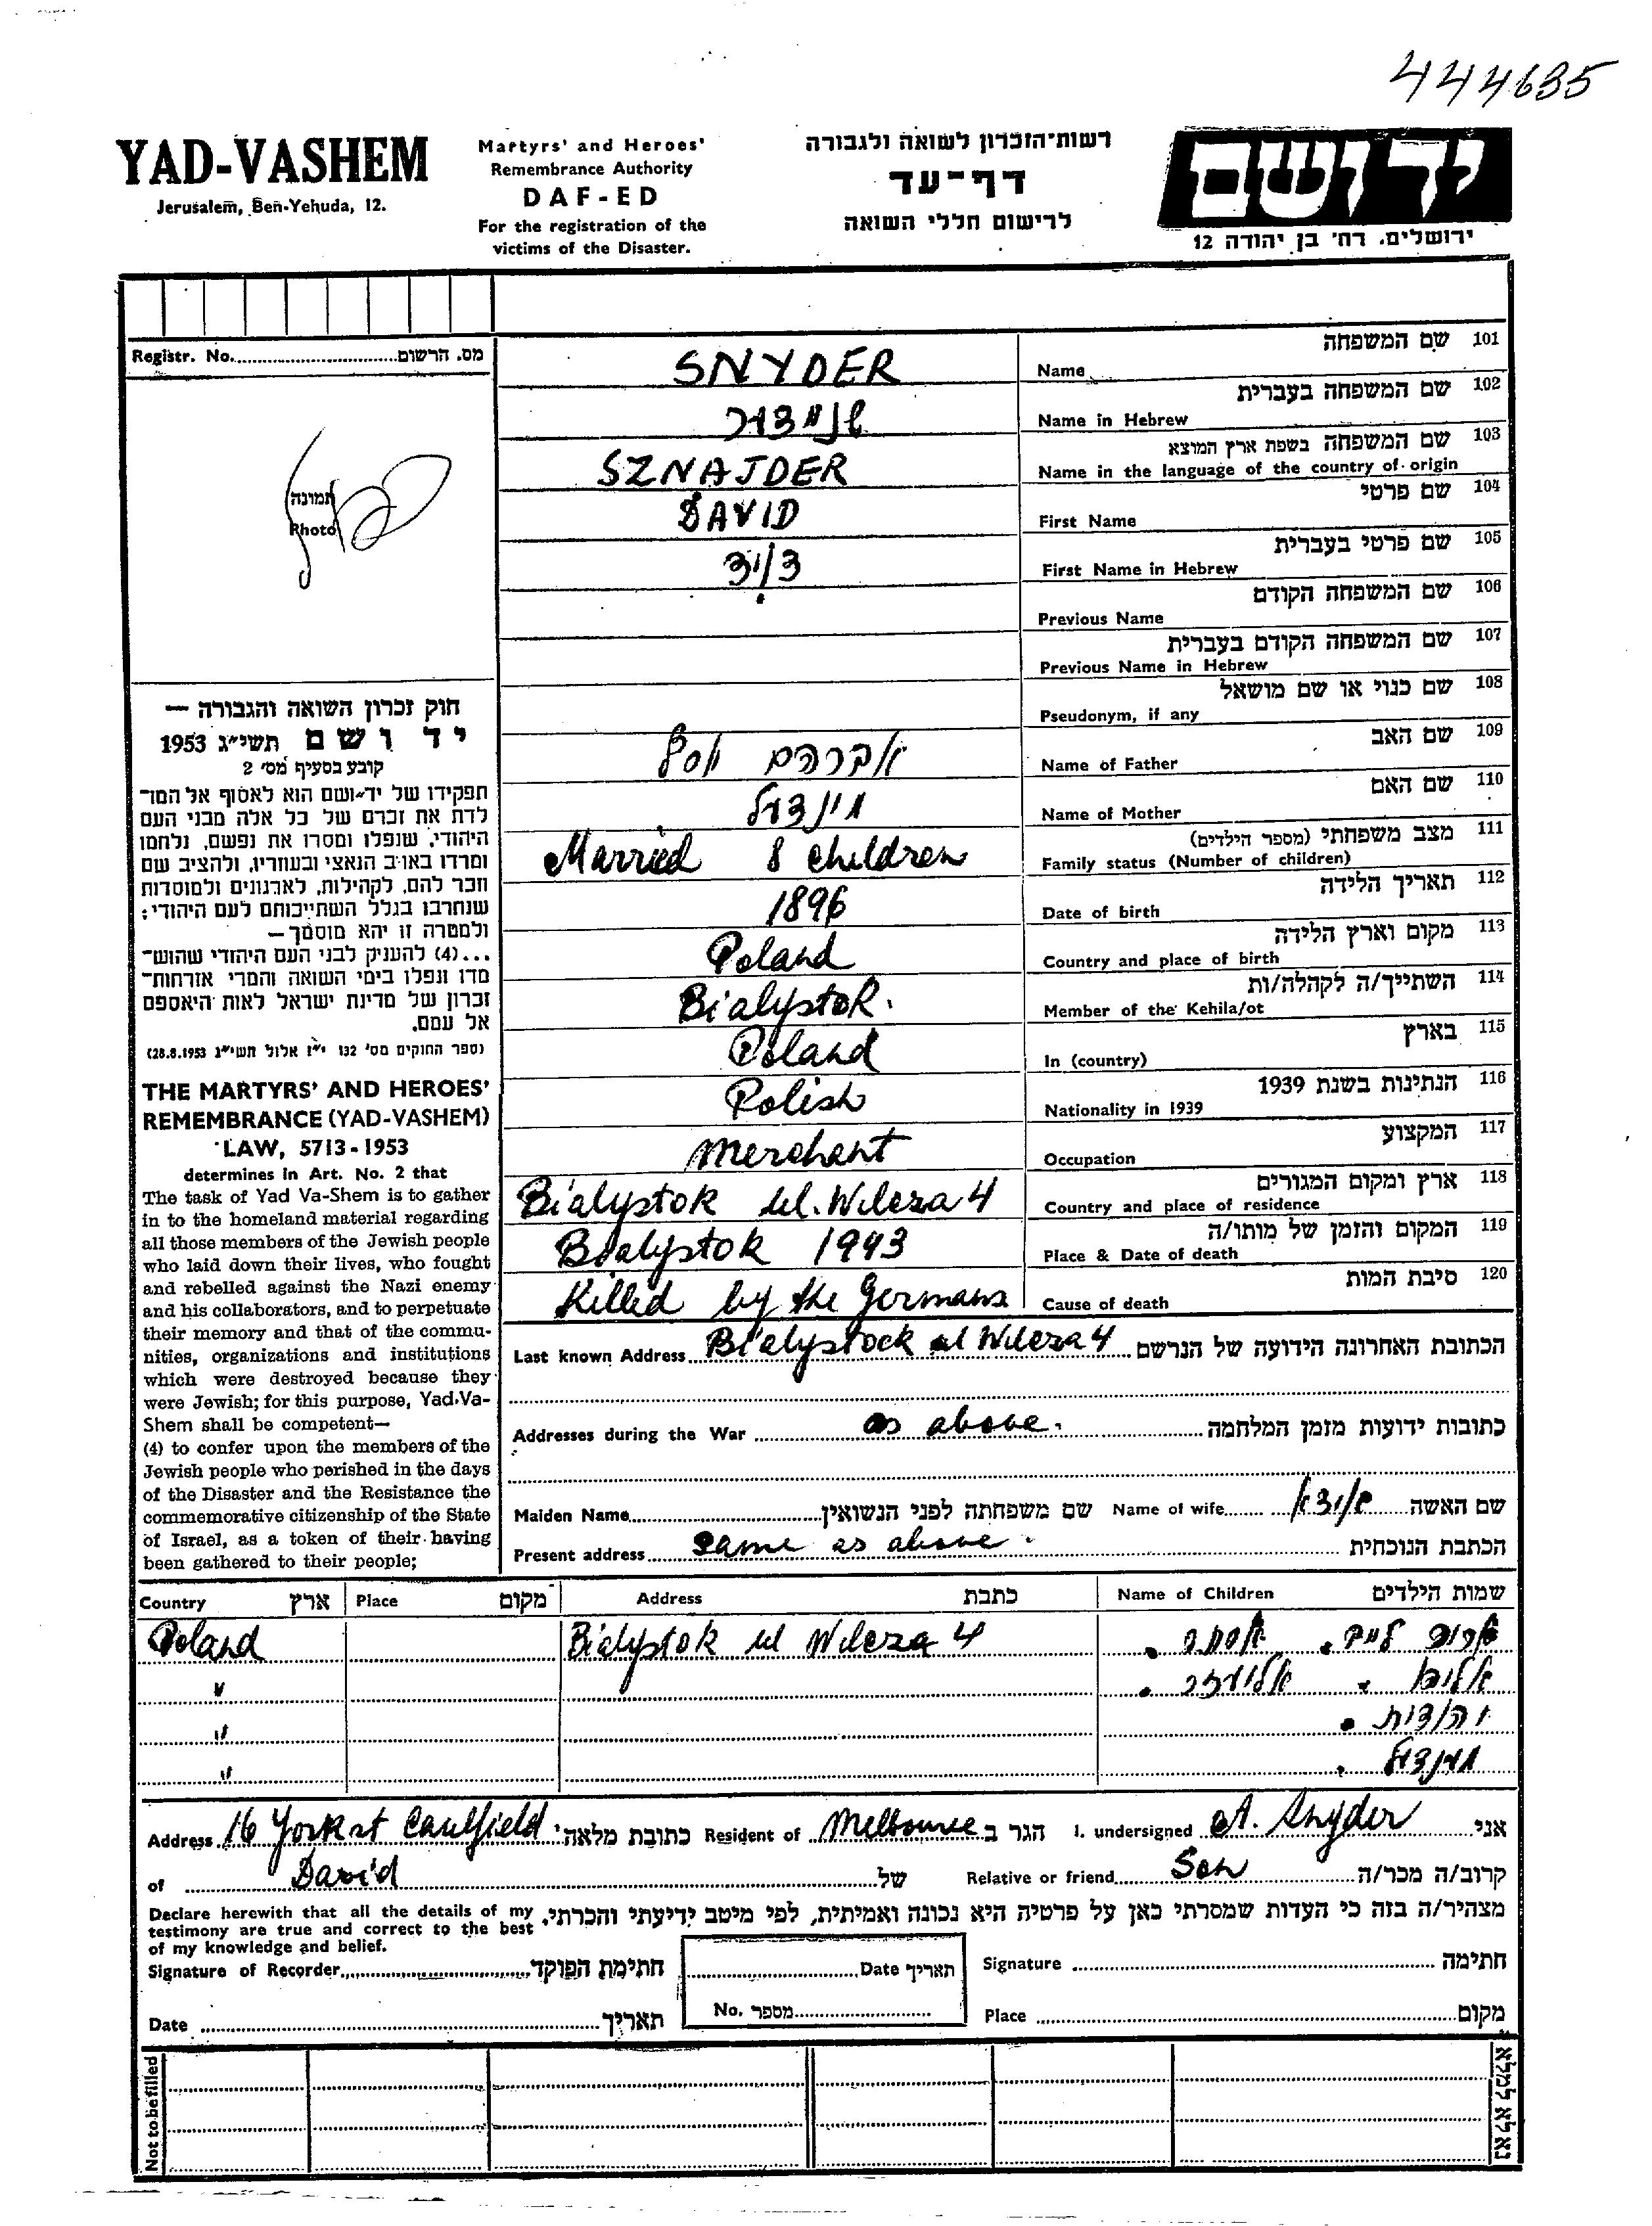 444635
YAD-VASHEM
Jerusalem, Ben-Yehuda, 12.
Martyrs' and Heroes'
Remembrance Authority
DAF-ED
For the registration of the
victims of the Disaster.
רשות־הזכרון לשואה ולגבורה
דף־עד
לרישום חללי השואה
יד ושם
ירושלים, רח' בן יהודה 12
Registr. No. מס. הרשום
תמונה
Photo
חוק זכרון השואה והגבורה —
יד ושם תשי״ג 1953
קובע בסעיף מס' 2
תפקידו של יד־ושם הוא לאסוף אל המו־
לדת את זכרם של כל אלה מבני העם
היהודי, שנפלו ומסרו את נפשם, נלחמו
ומרדו באויב הנאצי ובעוזריו, ולהציב שם
וזכר להם, לקהילות, לארגונים ולמוסדות
שנחרבו בגלל השתייכותם לעם היהודי;
ולמטרה זו יהא מוסמך—
...(4) להעניק לבני העם היהודי שהוש־
מדו ונפלו בימי השואה והמרי אזרחות־
זכרון של מדינת ישראל לאות היאספם
אל עמם.
(ספר החוקים מס' 132 י״ז אלול תשי״ג 28.8.1953)
THE MARTYRS' AND HEROES'
REMEMBRANCE (YAD-VASHEM)
LAW, 5713-1953
determines in Art. No. 2 that
The task of Yad Va-Shem is to gather
in to the homeland material regarding
all those members of the Jewish people
who laid down their lives, who fought
and rebelled against the Nazi enemy
and his collaborators, and to perpetuate
their memory and that of the commu-
nities, organizations and institutions
which were destroyed because they
were Jewish; for this purpose, Yad-Va-
Shem shall be competent—
(4) to confer upon the members of the
Jewish people who perished in the days
of the Disaster and the Resistance the
commemorative citizenship of the State
of Israel, as a token of their having
been gathered to their people;
101 שם המשפחה
SNYDER Name
102 שם המשפחה בעברית
שניידר Name in Hebrew
103 שם המשפחה בשפת ארץ המוצא
SZNAJDER Name in the language of the country of origin
104 שם פרטי
DAVID First Name
105 שם פרטי בעברית
דויד First Name in Hebrew
106 שם המשפחה הקודם
Previous Name
107 שם המשפחה הקודם בעברית
Previous Name in Hebrew
108 שם כנוי או שם מושאל
Pseudonym, if any
109 שם האב
אברהם יוסף Name of Father
110 שם האם
Name of Mother
111 מצב משפחתי (מספר הילדים)
Married 8 children Family status (Number of children)
112 תאריך הלידה
1896 Date of birth
113 מקום וארץ הלידה
Poland Country and place of birth
114 השתייך/ה לקהלה/ות
Bialystok. Member of the Kehila/ot
115 בארץ
Poland In (country)
116 הנתינות בשנת 1939
Polish Nationality in 1939
117 המקצוע
Merchant Occupation
118 ארץ ומקום המגורים
Bialystok ul. Wilcza 4 Country and place of residence
119 המקום והזמן של מותו/ה
Bialystok 1943 Place & Date of death
120 סיבת המות
Killed by the Germans Cause of death
Last known Address Bialystock ul Wilcza 4 הכתובת האחרונה הידועה של הנרשם
Addresses during the War as above. כתובות ידועות מזמן המלחמה
Maiden Name שם משפחתה לפני הנשואין Name of wife שם האשה
Present address same as above. הכתבת הנוכחית
Country ארץ Place מקום Address כתבת Name of Children שמות הילדים
Poland Bialystok ul Wilcza 4
"
" יהודית
"
Address 16 York st Caulfield כתובת מלאה Resident of Melbourne הגר ב I. undersigned A. Snyder אני
of David של Relative or friend Son קרוב/ה מכר/ה
Declare herewith that all the details of my
testimony are true and correct to the best
of my knowledge and belief.
מצהיר/ה בזה כי העדות שמסרתי כאן על פרטיה היא נכונה ואמיתית, לפי מיטב ידיעתי והכרתי.
Signature of Recorder חתימת הפוקד Date תאריך Signature חתימה
Date תאריך No. מספר Place מקום
Not to be filled נא לא למלא